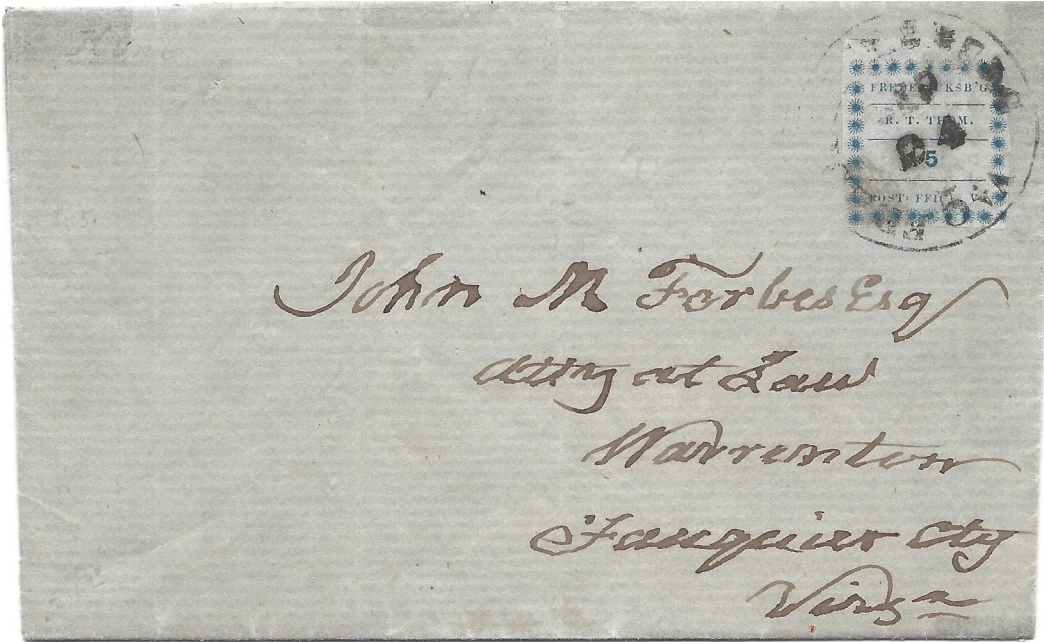 FREDERICKSB'G
R. T. THOM.
5
POST OFFICE, VA
John M Forbes Esq
Atty at Law
Warrenton
Fauquier Cty
Virga